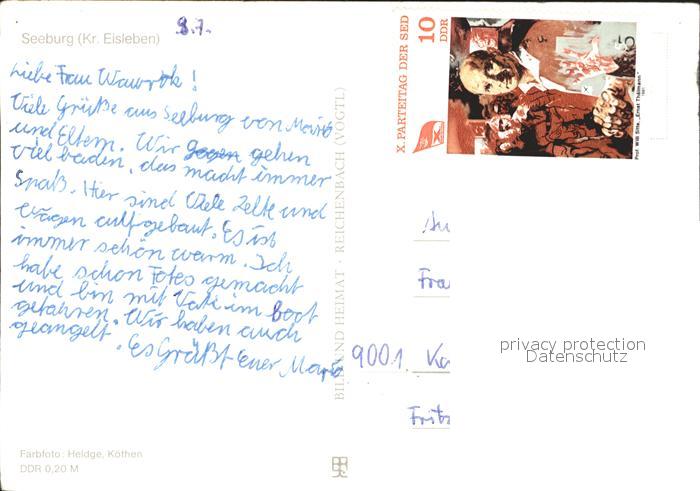 9.7.
Seeburg (Kr. Eisleben)
Liebe Frau !
Viele Grüße aus Seeburg von Mario
und Eltern. Wir gehen
viel baden, das macht immer
Spaß. Hier sind Viele Zelte und
Wagen aufgebaut. Es ist
immer schön warm. Ich
habe schon Fotos gemacht
und bin mit Vati im boot
gefahren. Wir haben auch
geangelt.
Es Grüßt Euer Mario
Farbfoto: Heldge, Köthen
DDR 0,20 M
BILD UND HEIMAT · REICHENBACH (VOGTL)
X. PARTEITAG DER SED
10
DDR
Prof. Willi Sitte, „Ernst Thälmann"
1981
An
Fra
9001 Ka
Fritz
privacy protection
Datenschutz